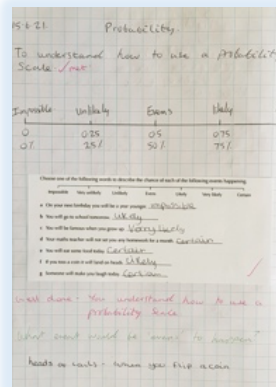 15.6.21
Probability.
To understand how to use a probability
Scale
Impossible Unlikely Evens Likely
0 0.25 0.5 0.75
0% 25% 50% 75%
Choose one of the following words to describe the chance of each of the following events happening.
Impossible Very unlikely Unlikely Even Likely Very likely Certain
a On your next birthday you will be a year younger. impossible
b You will go to school tomorrow. Likely
c You will be famous when you grow up.
d Your maths teacher will not set you any homework for a month. Certain
e You will eat some food today. Certain
f If you toss a coin it will land on heads. Likely
g Someone will make you laugh today. Certain
Well done - You understand how to use a
probability Scale
What event would be "evens" to happen?
heads or tails - when you flip a coin